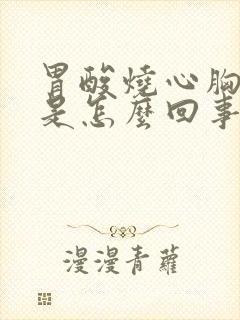 胃酸燒心胸
是怎麼回事
漫漫青蘿